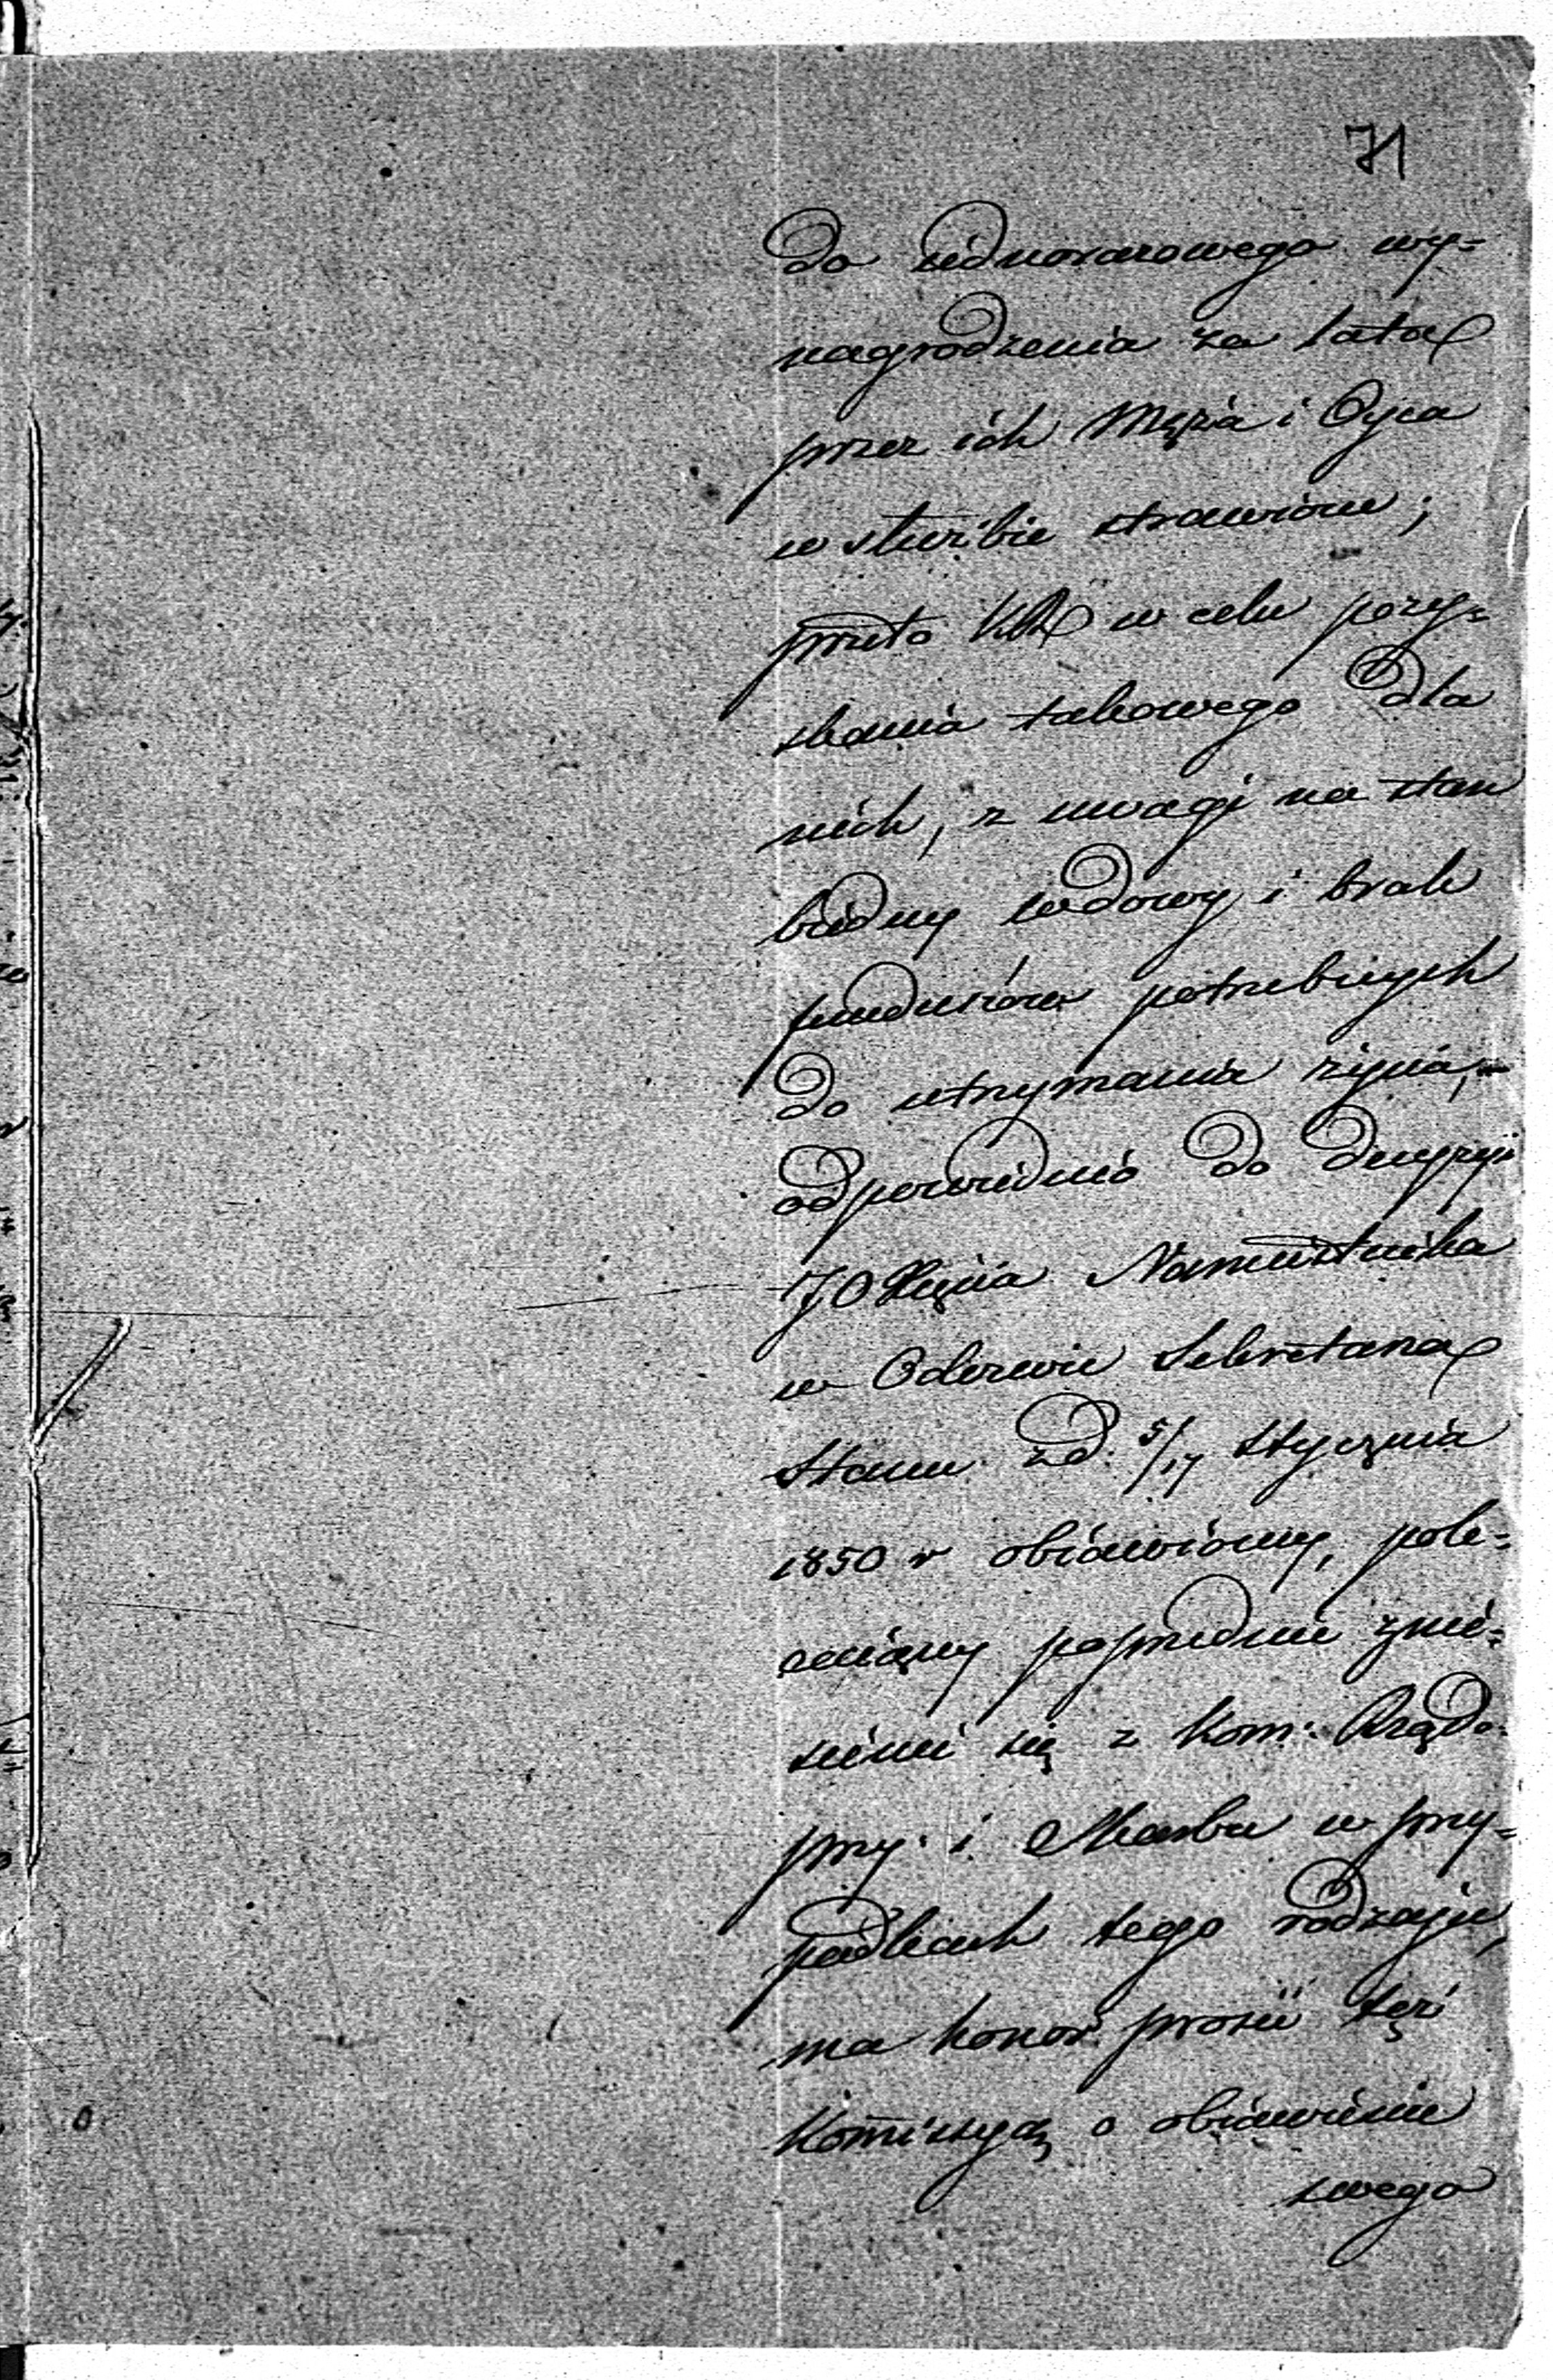 71
do iednorazowego wy=
nagrodzenia za lata
przez ich Męża i Oyca
w służbie strawione;
przeto KR w celu pozy=
skania takowego dla
nich, z uwagi na stan
biedny wdowy i brak
funduszów potrzebnych
do utrzymania życia,
odpowiednio do decyzyi
JO Xięcia Namiestnika
w Odezwie Sekretarza
Stanu z d. 5/17 Stycznia
1850 r obiawioney, pole=
caiącey poprzednie znie=
sienie się z Kom: Rządo:
przy: i Skarbu w przy=
padkach tego rodzaju,
ma honor prosić też
Kommissyą o obiawienie
swego